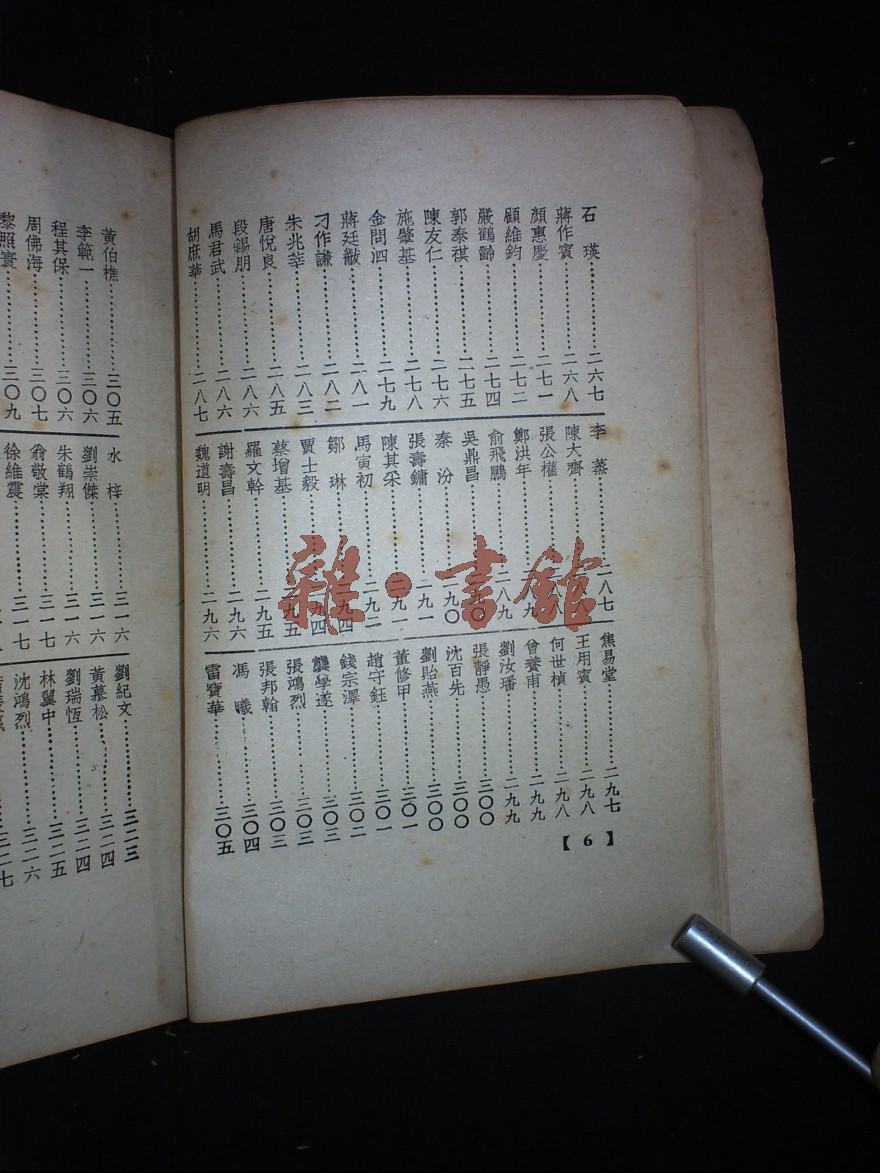 石　瑛…………二六七
蔣作賓…………二六八
顏惠慶…………二七一
顧維鈞…………二七二
嚴鶴齡…………二七四
郭泰祺…………二七五
陳友仁…………二七六
施肇基…………二七八
金問泗…………二七九
蔣廷黻…………二八一
刁作謙…………二八二
朱兆莘…………二八三
唐悅良…………二八五
段錫朋…………二八六
馬君武…………二八六
胡庶華…………二八七
李　蒸…………二八七
陳大齊…………
張公權…………
鄭洪年…………
俞飛鵬…………二八九
吳鼎昌…………
秦　汾…………二九〇
張壽鏞…………二九一
陳其采…………二九一
馬寅初…………二九二
鄒　琳…………二九四
賈士毅…………二九四
蔡增基…………二九五
羅文幹…………二九五
謝壽昌…………二九六
魏道明…………二九六
焦易堂…………二九七
王用賓…………二九八
何世楨…………二九八
曾養甫…………二九九
劉汝璠…………二九九
張靜愚…………三〇〇
沈百先…………三〇〇
劉貽燕…………三〇〇
董修甲…………三〇一
趙守鈺…………三〇一
錢宗澤…………三〇二
龔學遂…………三〇三
張鴻烈…………三〇三
張邦翰…………三〇三
馮　曦…………三〇四
雷寶華…………三〇五
【6】
黃伯樵…………三〇五
李範一…………三〇六
程其保…………三〇六
周佛海…………三〇七
黎照寰…………三〇九
水　梓…………三一六
劉崇傑…………三一六
朱鶴翔…………三一六
翁敬棠…………三一七
徐維震…………三一七
劉紀文…………三二三
黃慕松…………三二四
劉瑞恆…………三二四
林翼中…………三二五
沈鴻烈…………三二六
三二七
雜·書館